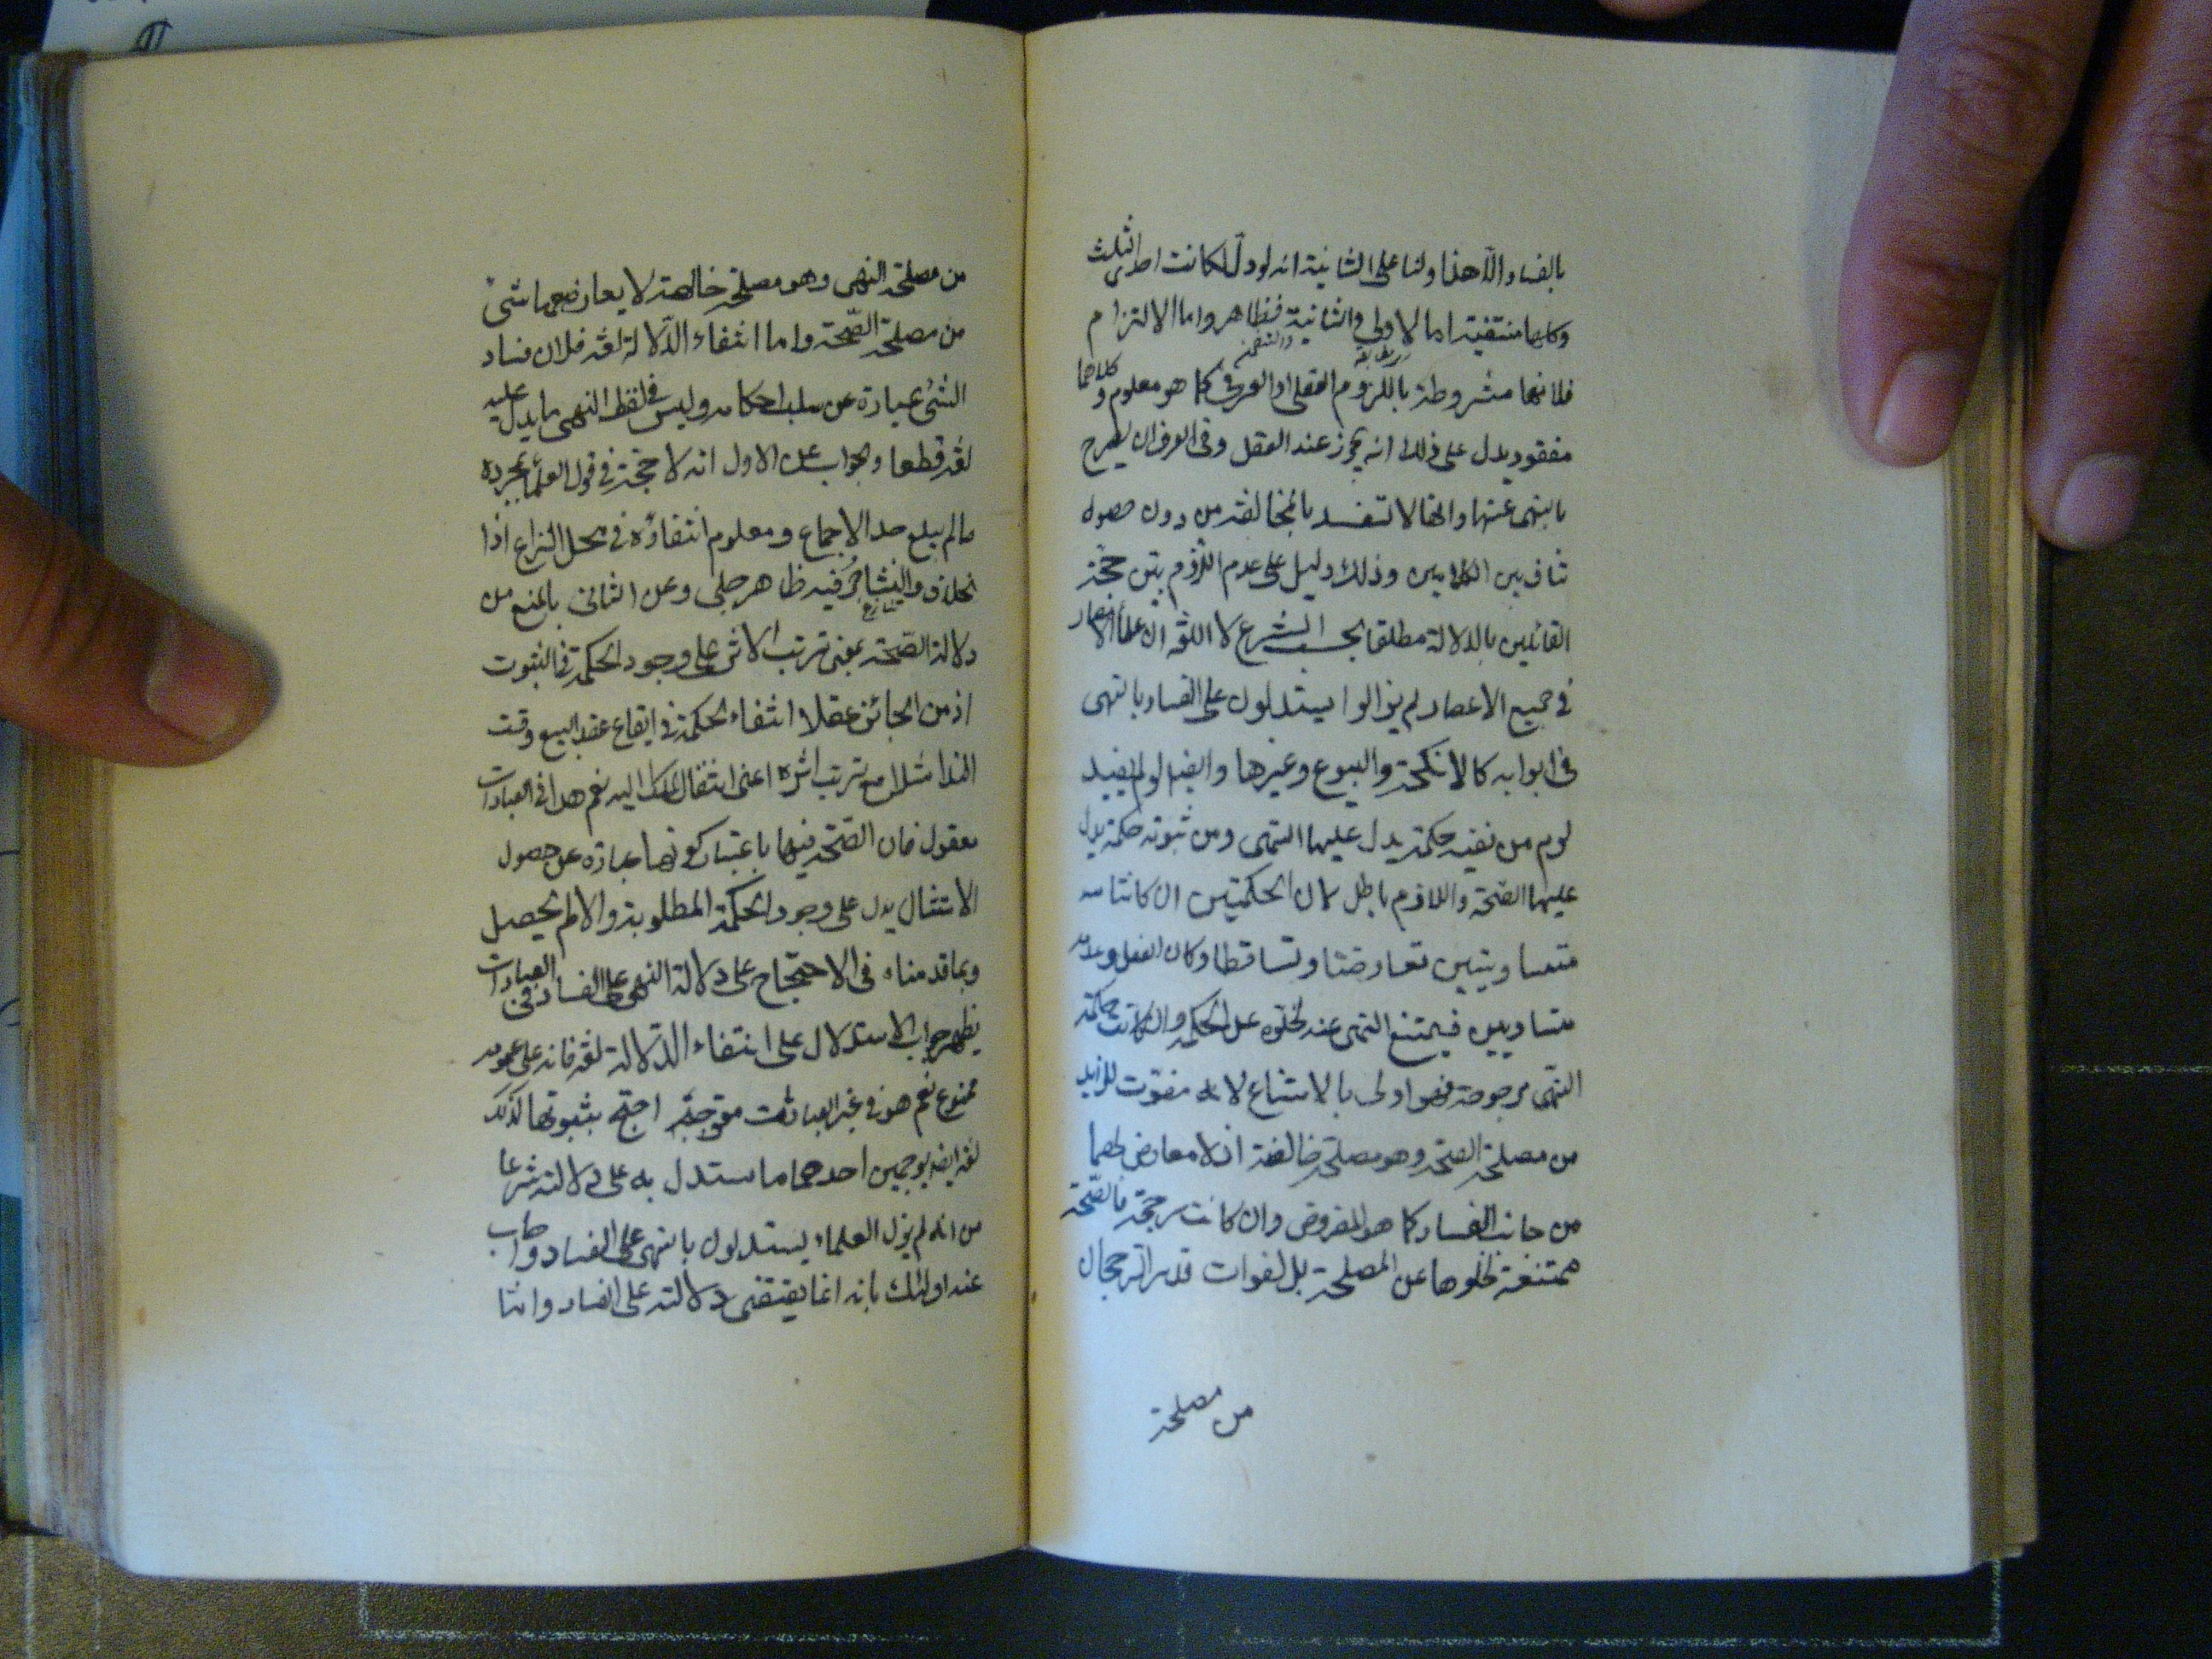 بالفساد الا هذا ولنا على الثانية انه لو دل لكانت احدى الثلث
وكلها منتفية اما الاولى والثانية فظاهر واما الالتزام
فلانها مشروطة باللزوم العقلى او العرفى كما هو معلوم وكلاهما
مفقود يدل على ذلك انه يجوز عند العقل وفى العرف ان يصرح
بالنهى عنها وانها لا تفسد بالمخالفة من دون حصول
تناف بين الكلامين وذلك دليل على عدم اللزوم بين حجة
القائلين بالدلالة مطلقا بحسب الشرع لا اللغة ان علماء الامصار
فى جميع الاعصار لم يزالوا يستدلون على الفساد بالنهى
فى ابوابه كالانكحة والبيوع وغيرها وايضا لو لم يفسد
لزم من نفيه حكمة يدل عليها النهى ومن ثبوته حكمة يدل
عليها الصحة واللازم باطل لان الحكمتين ان كانتا
متساويتين تعارضتا وتساقطا وكان الفعل وعدمه
متساويين فيمتنع النهى عنه لخلوه عن الحكمة وان كانت حكمة
النهى مرجوحة فهو اولى بالامتناع لانه مفوت للزايد
من مصلحة الصحة وهو مصلحة خالصة اذ لا معارض لها
من جانب الفساد كما هو المفروض وان كانت راجحة فالصحة
ممتنعة لخلوها عن المصلحة بل لفوات قدر الرجحان
من مصلحة
من مصلحة النهى وهو مصلحة خالصة لا يعارضها شئ
من مصلحة الصحة واما انتفاء الدلالة لغة فلان فساد
الشئ عبارة عن سلب احكامه وليس فى لفظ النهى ما يدل عليه
لغة قطعا والجواب عن الاول انه لا حجة فى قول العلماء بمجرده
ما لم يبلغ حد الاجماع ومعلوم انتفاؤه فى محل النزاع اذا
الخلاف والتشاجر فيه ظاهر جلى وعن الثانى بالمنع من
دلالة الصحة بمعنى ترتب الاثر على وجود الحكمة فى الثبوت
اذ من الجائز عقلا انتفاء الحكمة فى ايقاع عقد البيع وقت
النداء مثلا مع ترتب اثره اعنى انتقال الملك اليه نعم هذا فى العبادات
معقول فان الصحة فيها باعتبار كونها عبارة عن حصول
الامتثال يدل على وجود الحكمة المطلوبة والا لم يحصل
وبما قدمناه فى الاحتجاج على دلالة النهى على الفساد فى العبادات
يظهر جواب الاستدلال على انتفاء الدلالة لغة فانه على عمومه
ممنوع نعم هو فى غير العبادات متوجه احتج مثبتوها كذلك
لغة ايضا بوجهين احدهما ما استدل به على دلالته شرعا
من انه لم يزل العلماء يستدلون بالنهى على الفساد واجاب
عنه اولئك بانه انما يقتضى دلالته على الفساد واما